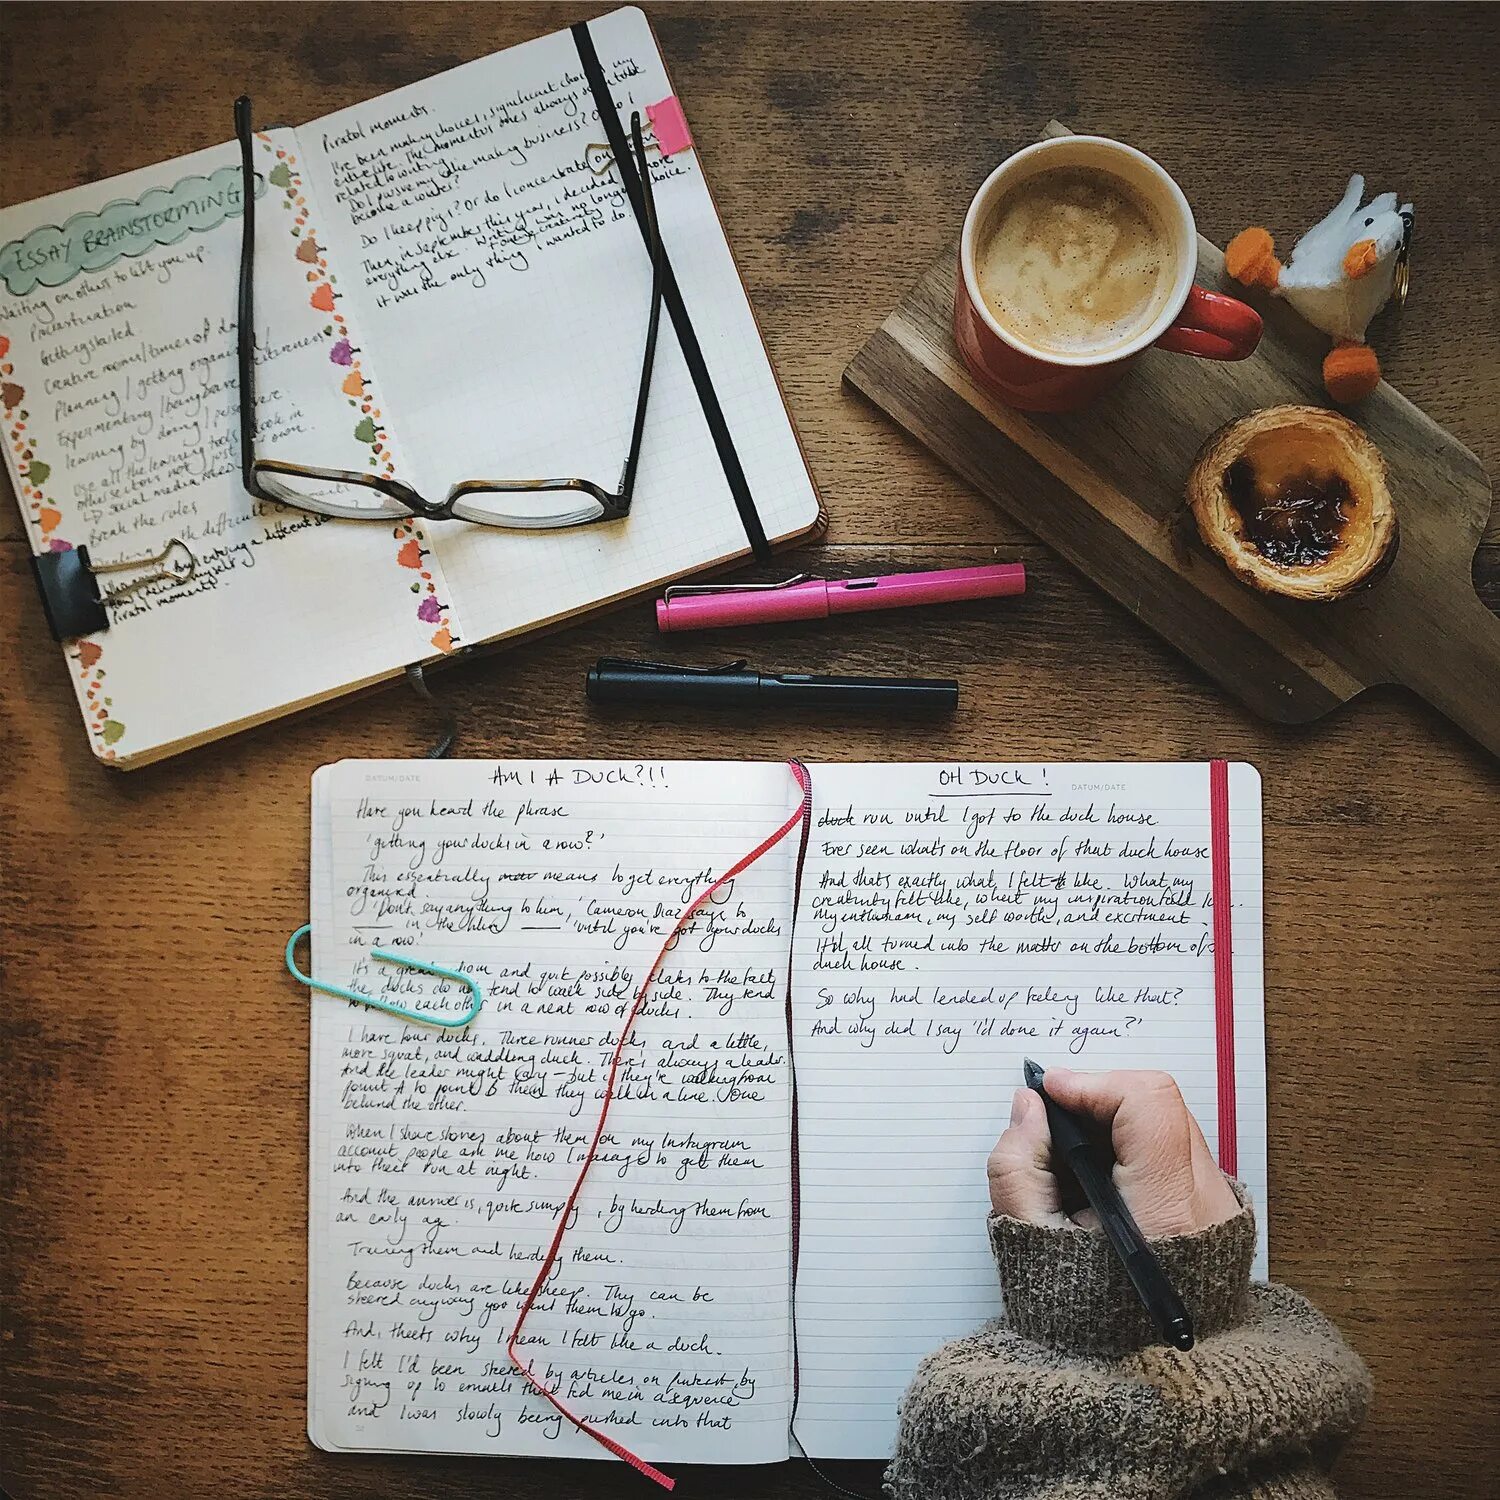 ESSAY BRAINSTORMING
Waiting on others to lift you up.
Procrastination
Getting started.
Creative rooms/times of day
Planning / getting organised
Experimenting /
learning by doing / persevere.
Use all the learning tools look in
other sectors not just your own.
LD social media
Break the rules
with difficult
by entering a different
How I
Pivotal moments.
Pivotal moments.
I've been making choices, significant choices my
entire life. The momentus ones always
related to writing.
Do I pursue my making business? Or do I
become a writer?
Do I keep pigs? Or do I concentrate on
Then, in September this year, I decided more
everything else. Writing was no longer choice.
creativity
It was the only thing I wanted to do.
DATUM/DATE
AM I A DUCK?!!
Have you heard the phrase
'getting your ducks in a row?'
This essentially means to get everything
organised
'Don't say anything to him,' Cameron Diaz says to
in the film 'until you've got your ducks
in a row.'
It's a great and quite possibly relates to the fact
the ducks do not tend to walk side by side. They tend
to follow each other in a neat row of ducks.
I have four ducks. Three runner ducks and a little,
more squat, and waddling duck. There's always a leader.
And the leader might vary – but if they're walking from
point A to point B then they walk in a line. One
behind the other.
When I share stories about them on my Instagram
account people ask me how I manage to get them
into their run at night.
And the answer is, quite simply, by herding them from
an early age.
Training them and herding them.
Because ducks are like sheep. They can be
steered anyway you want them to go.
And, that's why I mean I felt like a duck.
I felt I'd been steered by articles on Pinterest, by
signing up to emails that fed me in a sequence
and I was slowly being pushed into that
OH DUCK!
DATUM/DATE
duck run until I got to the duck house.
Ever seen what's on the floor of that duck house
And that's exactly what I felt like. What my
creativity felt like, what my inspiration felt
my enthusiasm, my self worth, and excitment.
It'd all turned into the matter on the bottom of
duck house.
So why had I ended up feeling like that?
And why did I say 'I'd done it again?'